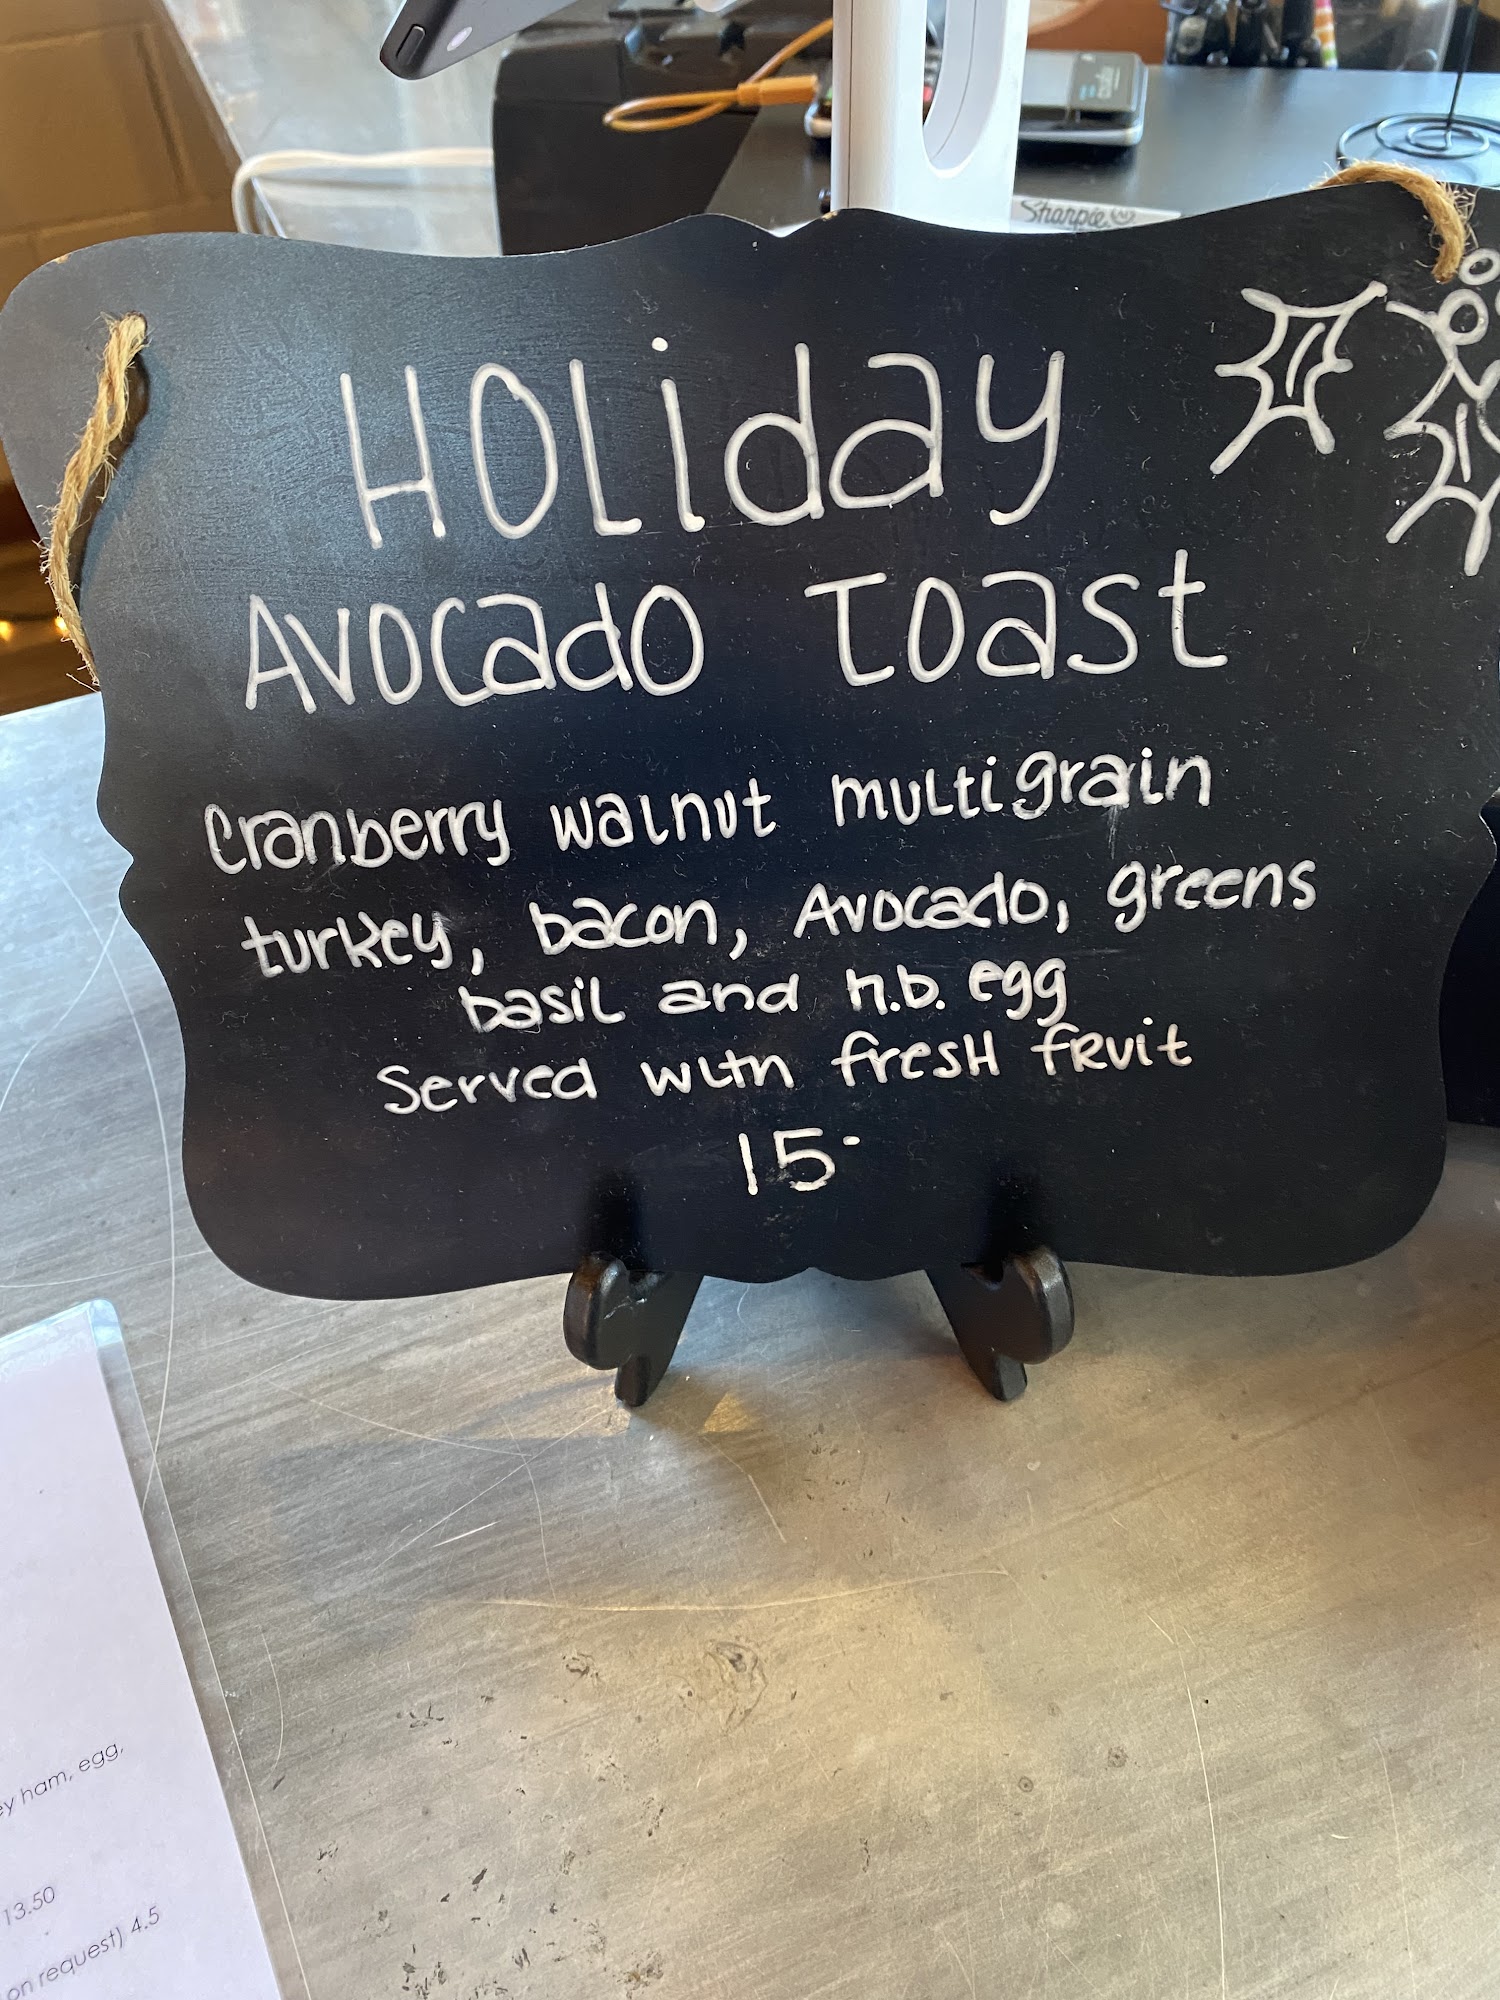 Sharpie
HOLiday
AVOCado TOast
Cranberry walnut multigrain
turkey, bacon, Avocado, greens
basil and h.b. egg
Served with fresH fRuit
15-
ey ham, egg,
13.50
on request) 4.5